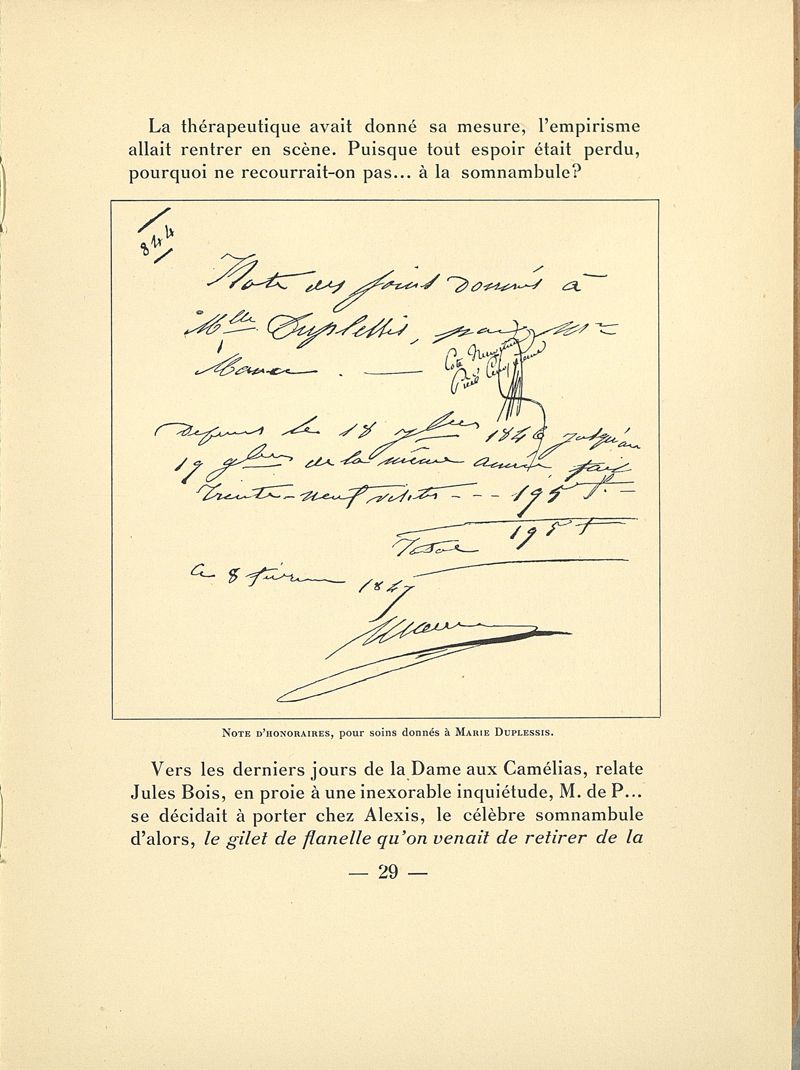 La thérapeutique avait donné sa mesure, l'empirisme
allait rentrer en scène. Puisque tout espoir était perdu,
pourquoi ne recourrait-on pas... à la somnambule?
844
Note des soins donnés à
Mlle Duplessis, par Mr
Cote
Pièce
Depuis le 18 9bre 1846 jusqu'au
19 de la même année, fait
trente-neuf visites - - - 195 f. -
Total 195 f
Ce 8 février 1847
Note d'honoraires, pour soins donnés à Marie Duplessis.
Vers les derniers jours de la Dame aux Camélias, relate
Jules Bois, en proie à une inexorable inquiétude, M. de P...
se décidait à porter chez Alexis, le célèbre somnambule
d'alors, le gilet de flanelle qu'on venait de retirer de la
— 29 —